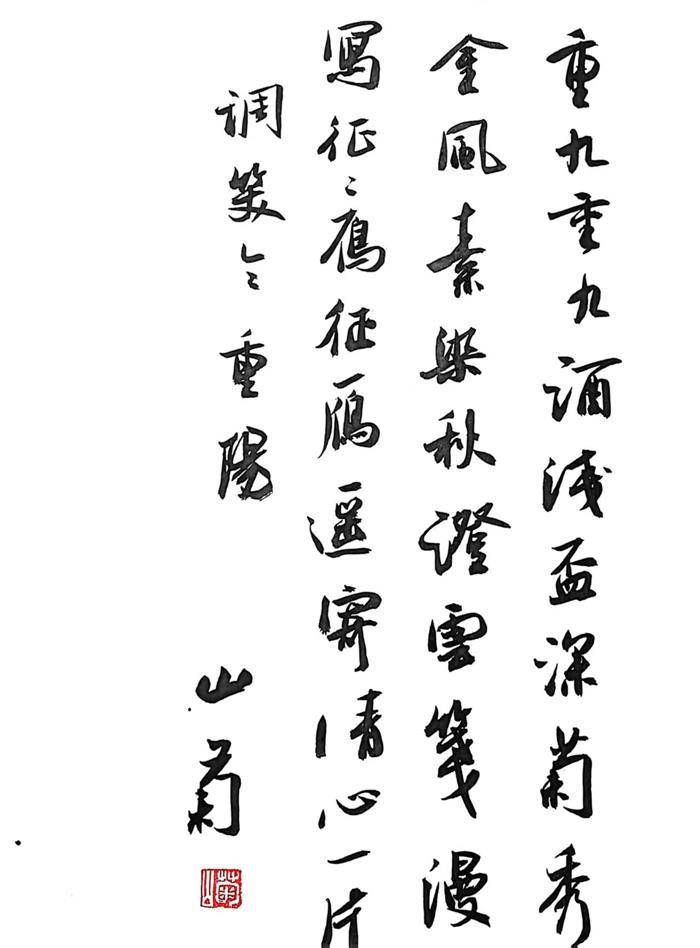 重九重九酒淺盃深菊秀
金風素染秋澄雲箋漫
寫征〻鴈征鴈遥寄清心一片
调笑令 重陽
山菊
山菊